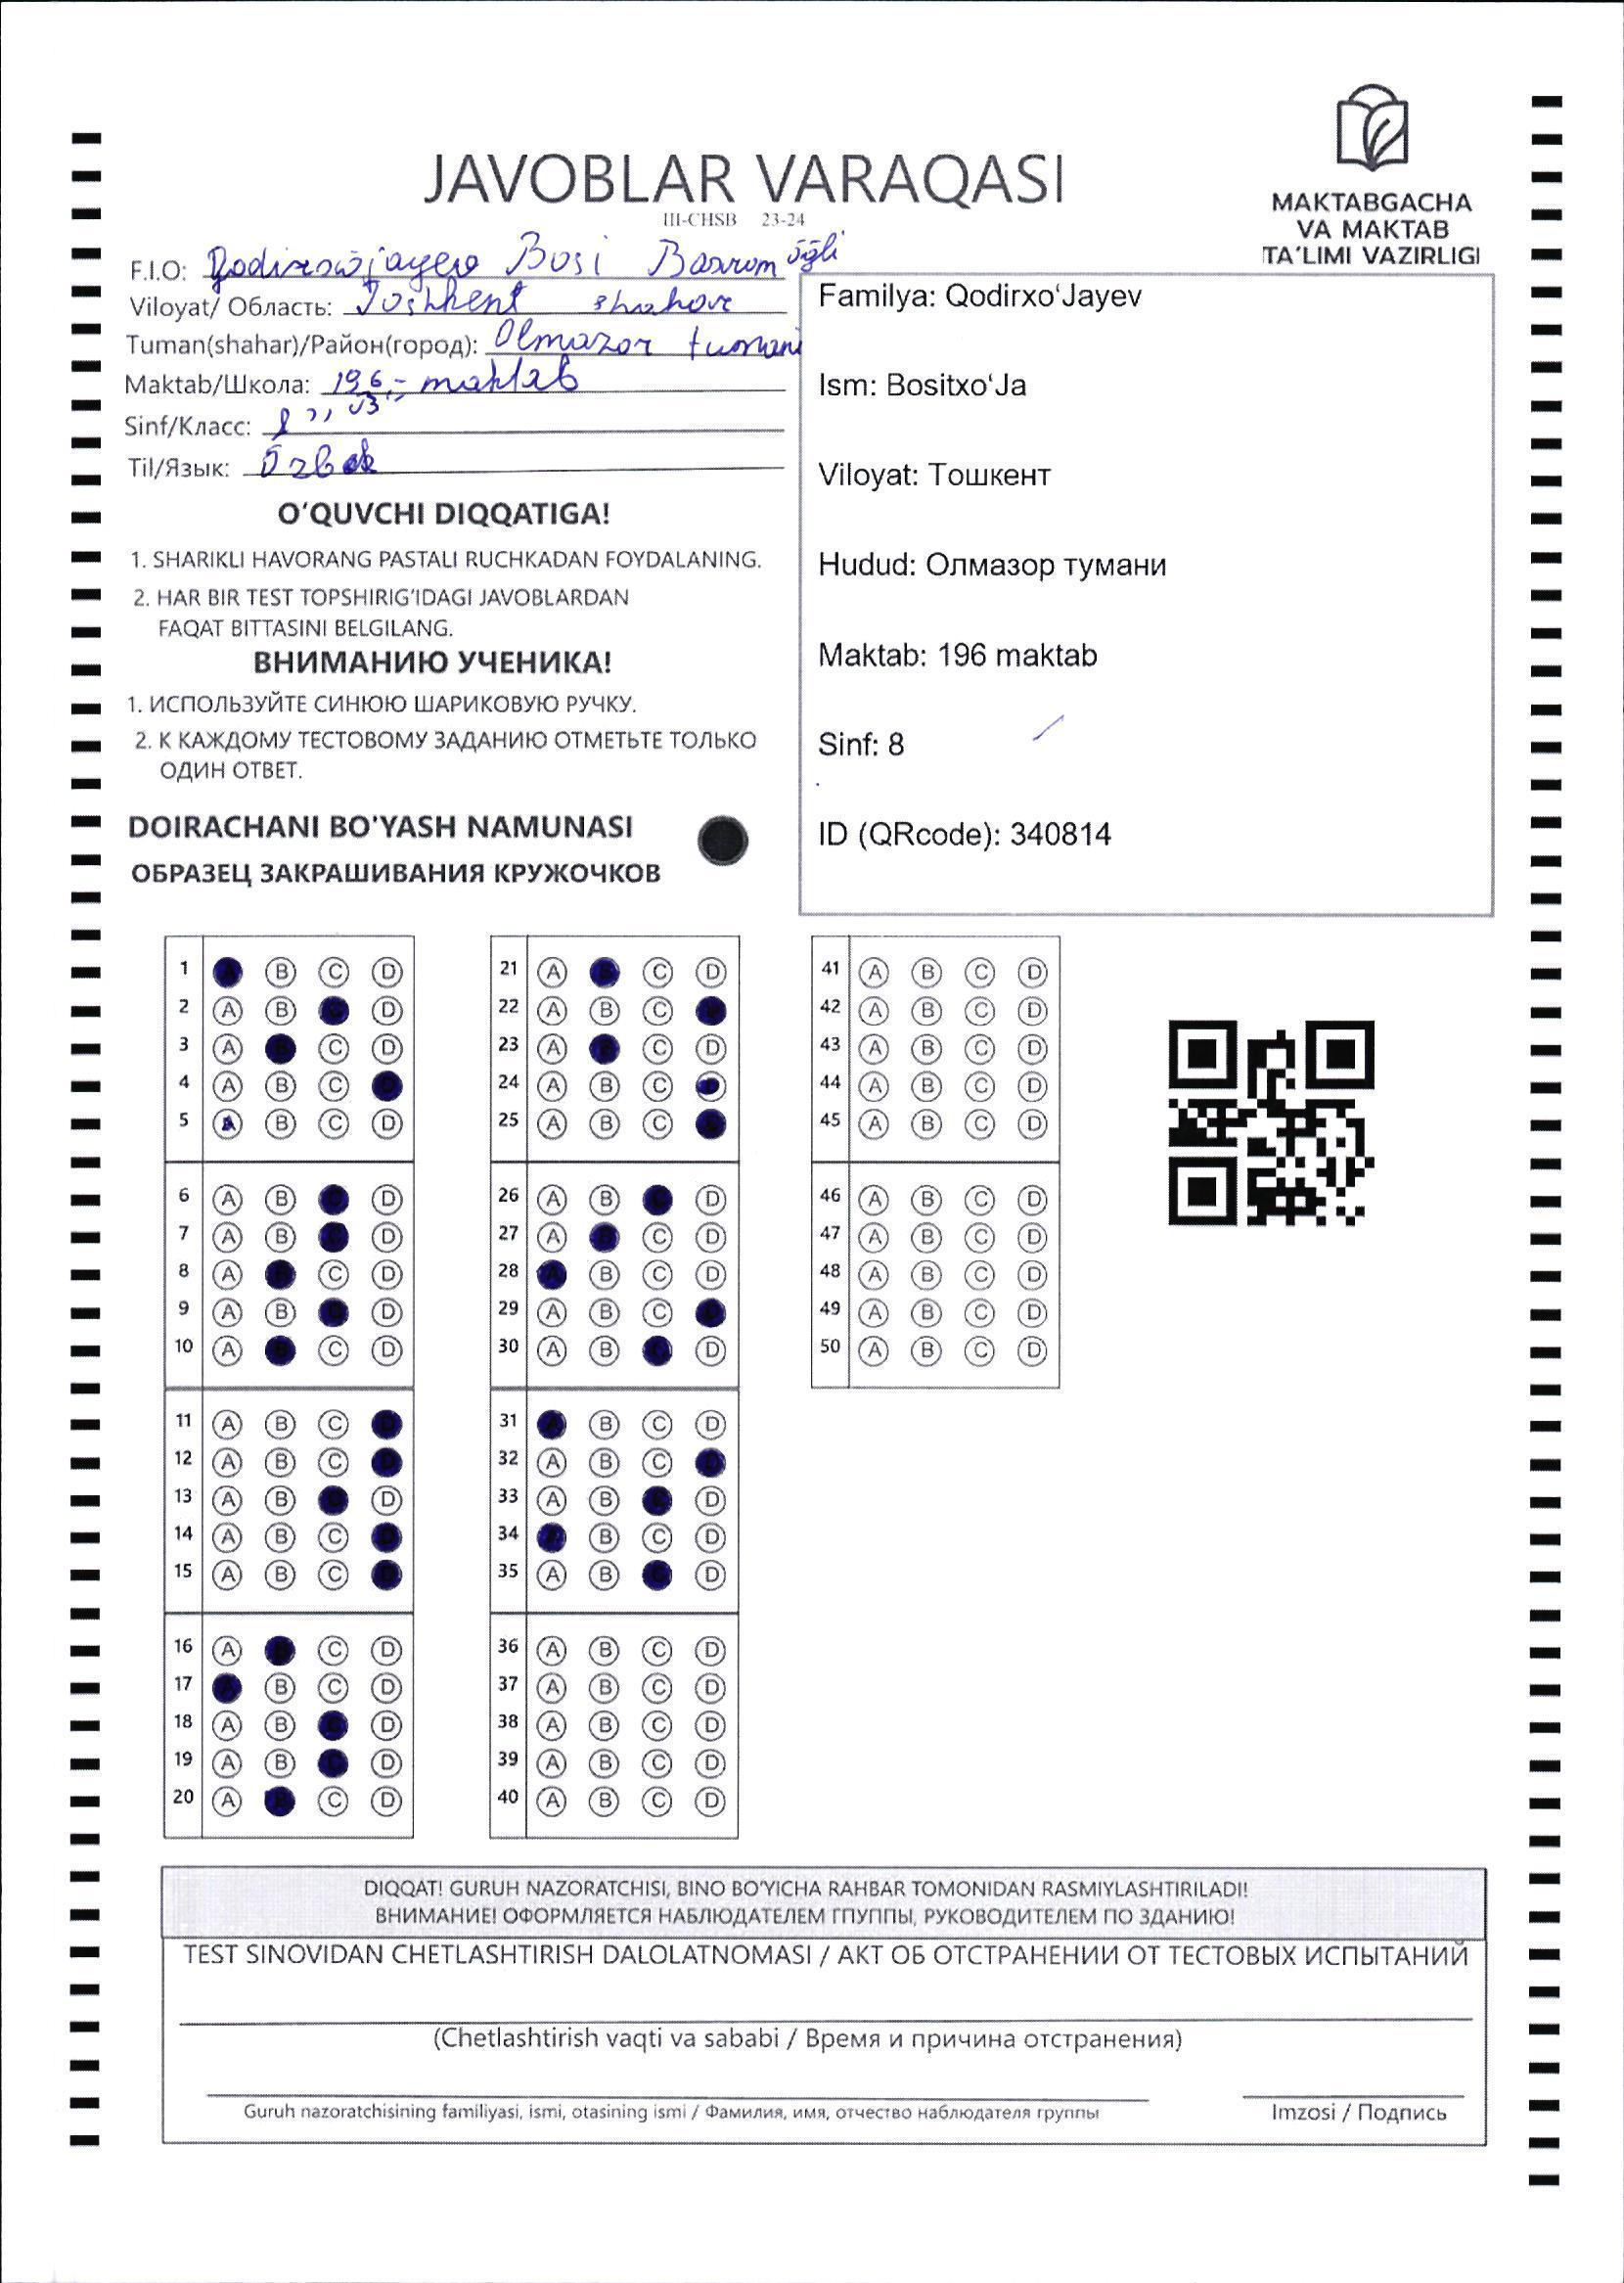 JAVOBLAR VARAQASI
III-CHSB 23-24
MAKTABGACHA
VA MAKTAB
TA'LIMI VAZIRLIGI
F.I.O: Qodirxo'jayev Bosi oʻgʻli
Viloyat/ Область: Toshkent shahar
Tuman(shahar)/Район(город): Olmazor tumani
Maktab/Школа: 196 - maktab
Sinf/Класс: 8
Til/Язык: Oʻzbek
O'QUVCHI DIQQATIGA!
1. SHARIKLI HAVORANG PASTALI RUCHKADAN FOYDALANING.
2. HAR BIR TEST TOPSHIRIG'IDAGI JAVOBLARDAN
FAQAT BITTASINI BELGILANG.
ВНИМАНИЮ УЧЕНИКА!
1. ИСПОЛЬЗУЙТЕ СИНЮЮ ШАРИКОВУЮ РУЧКУ.
2. К КАЖДОМУ ТЕСТОВОМУ ЗАДАНИЮ ОТМЕТЬТЕ ТОЛЬКО
ОДИН ОТВЕТ.
DOIRACHANI BO'YASH NAMUNASI
ОБРАЗЕЦ ЗАКРАШИВАНИЯ КРУЖОЧКОВ
Familya: Qodirxo'Jayev
Ism: Bositxo'Ja
Viloyat: Тошкент
Hudud: Олмазор тумани
Maktab: 196 maktab
Sinf: 8
ID (QRcode): 340814
1 A B C D
2 A B C D
3 A B C D
4 A B C D
5 A B C D
6 A B C D
7 A B C D
8 A B C D
9 A B C D
10 A B C D
11 A B C D
12 A B C D
13 A B C D
14 A B C D
15 A B C D
16 A B C D
17 A B C D
18 A B C D
19 A B C D
20 A B C D
21 A B C D
22 A B C D
23 A B C D
24 A B C D
25 A B C D
26 A B C D
27 A B C D
28 A B C D
29 A B C D
30 A B C D
31 A B C D
32 A B C D
33 A B C D
34 A B C D
35 A B C D
36 A B C D
37 A B C D
38 A B C D
39 A B C D
40 A B C D
41 A B C D
42 A B C D
43 A B C D
44 A B C D
45 A B C D
46 A B C D
47 A B C D
48 A B C D
49 A B C D
50 A B C D
DIQQAT! GURUH NAZORATCHISI, BINO BO'YICHA RAHBAR TOMONIDAN RASMIYLASHTIRILADI!
ВНИМАНИЕ! ОФОРМЛЯЕТСЯ НАБЛЮДАТЕЛЕМ ГПУППЫ, РУКОВОДИТЕЛЕМ ПО ЗДАНИЮ!
TEST SINOVIDAN CHETLASHTIRISH DALOLATNOMASI / АКТ ОБ ОТСТРАНЕНИИ ОТ ТЕСТОВЫХ ИСПЫТАНИЙ
(Chetlashtirish vaqti va sababi / Время и причина отстранения)
Guruh nazoratchisining familiyasi, ismi, otasining ismi / Фамилия, имя, отчество наблюдателя группы
Imzosi / Подпись